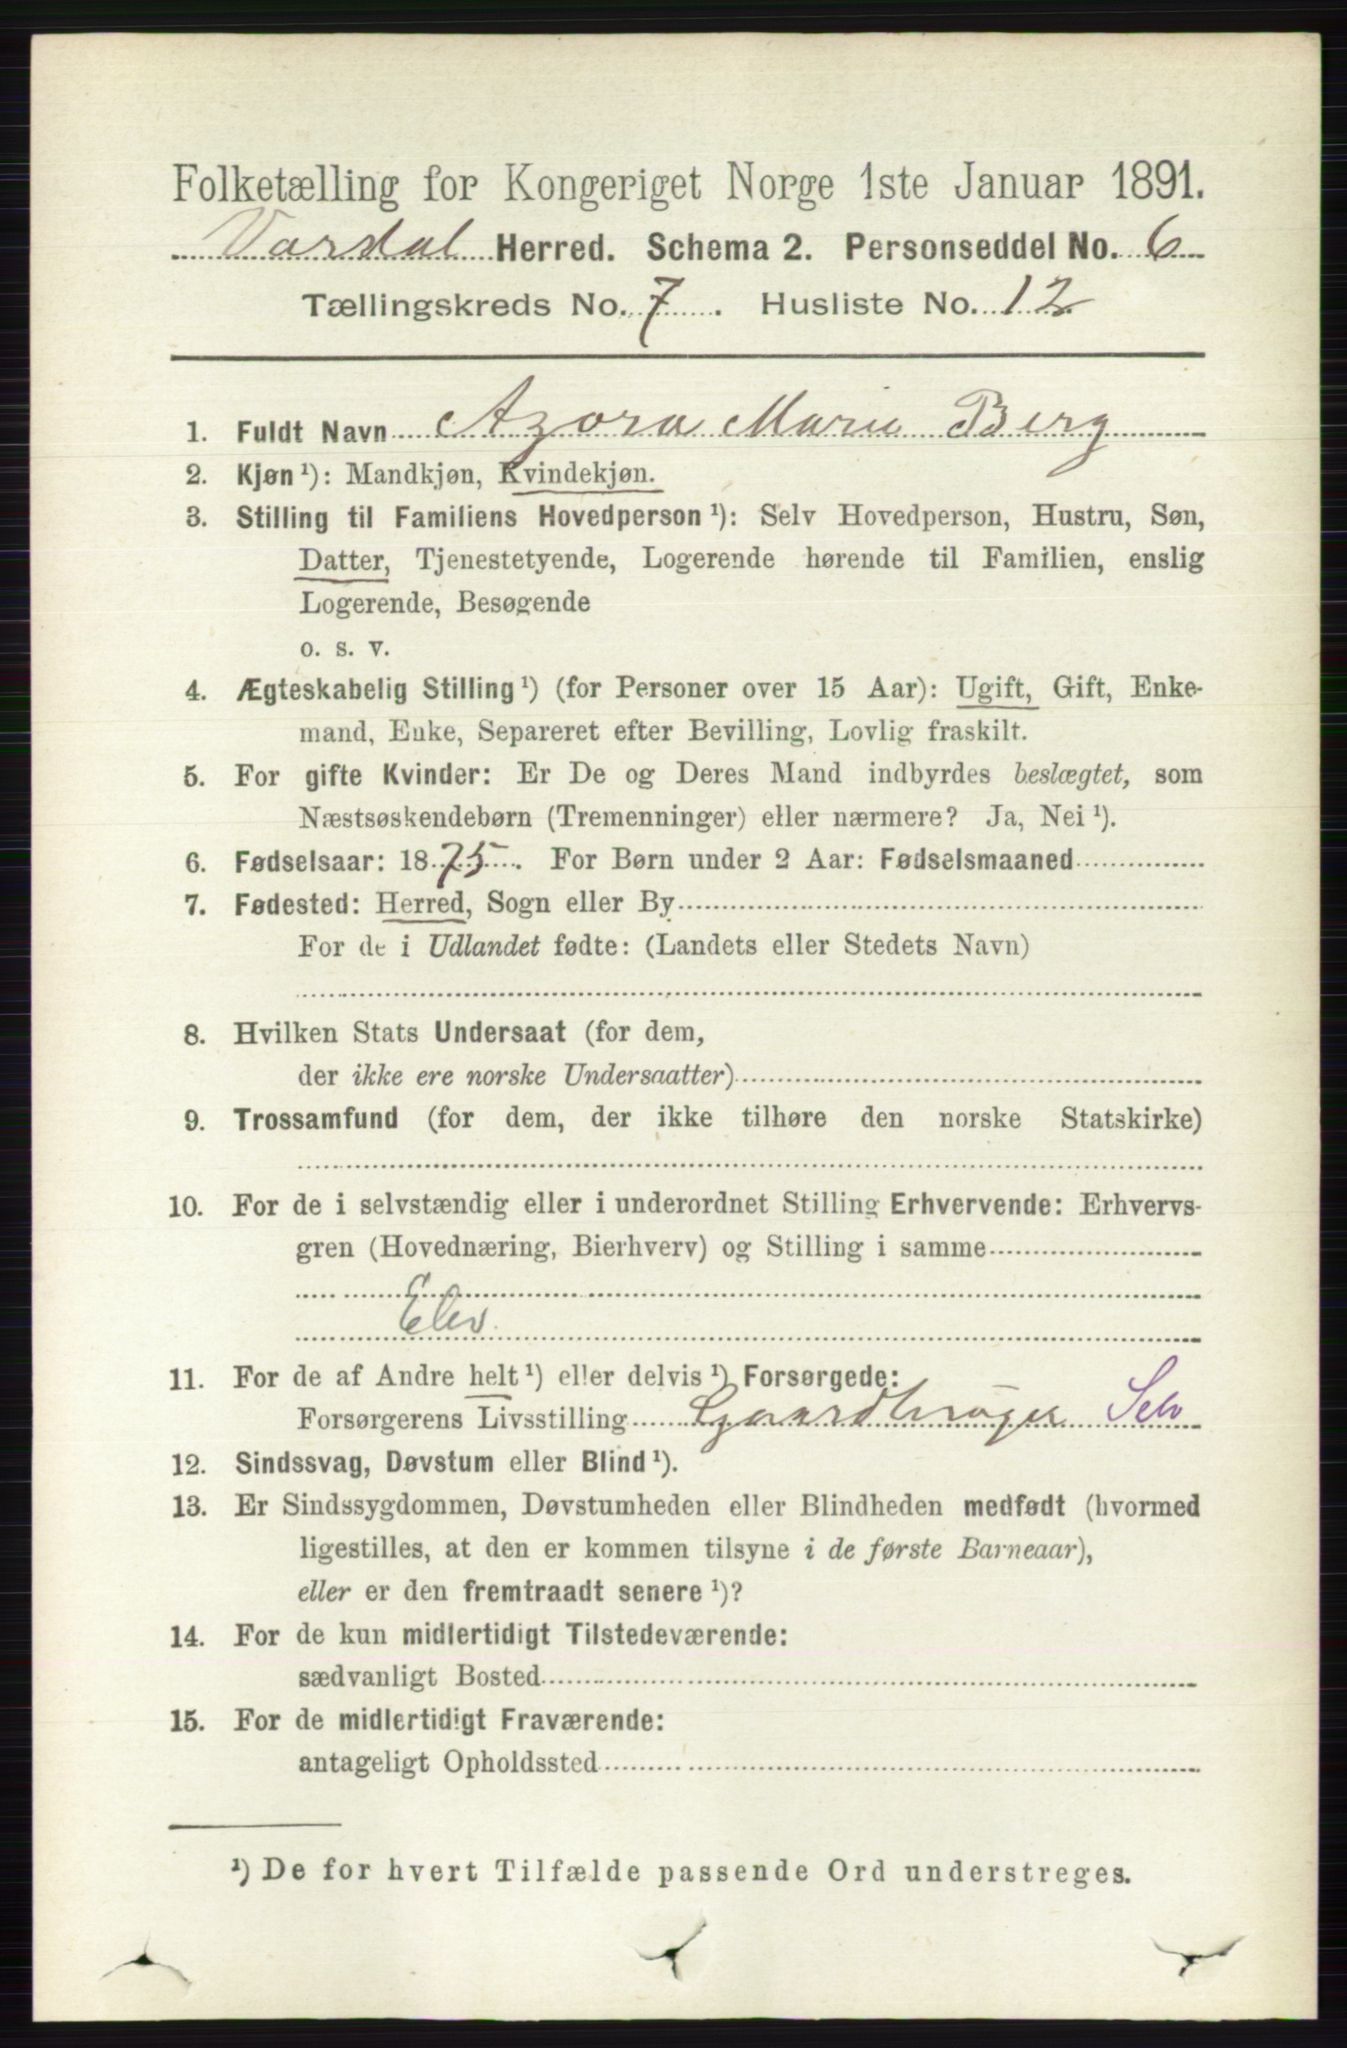 Folketælling for Kongeriget Norge 1ste Januar 1891.
Vardal Herred. Schema 2. Personseddel No. 6
Tællingskreds No. 7. Husliste No. 12
1. Fuldt Navn Azora Marie Berg
2. Kjøn¹): Mandkjøn, Kvindekjøn.
3. Stilling til Familiens Hovedperson¹): Selv Hovedperson, Hustru, Søn,
Datter, Tjenestetyende, Logerende hørende til Familien, enslig
Logerende, Besøgende
o. s. v.
4. Ægteskabelig Stilling¹) (for Personer over 15 Aar): Ugift, Gift, Enke-
mand, Enke, Separeret efter Bevilling, Lovlig fraskilt.
5. For gifte Kvinder: Er De og Deres Mand indbyrdes beslægtet, som
Næstsøskendebørn (Tremenninger) eller nærmere? Ja, Nei¹).
6. Fødselsaar: 1875. For Børn under 2 Aar: Fødselsmaaned
7. Fødested: Herred, Sogn eller By
For de i Udlandet fødte: (Landets eller Stedets Navn)
8. Hvilken Stats Undersaat (for dem,
der ikke ere norske Undersaatter)
9. Trossamfund (for dem, der ikke tilhøre den norske Statskirke)
10. For de i selvstændig eller i underordnet Stilling Erhvervende: Erhvervs-
gren (Hovednæring, Bierhverv) og Stilling i samme
Elev
11. For de af Andre helt¹) eller delvis¹) Forsørgede:
Forsørgerens Livsstilling Gaardbruger Selv
12. Sindssvag, Døvstum eller Blind¹).
13. Er Sindssygdommen, Døvstumheden eller Blindheden medfødt (hvormed
ligestilles, at den er kommen tilsyne i de første Barneaar),
eller er den fremtraadt senere¹)?
14. For de kun midlertidigt Tilstedeværende:
sædvanligt Bosted
15. For de midlertidigt Fraværende:
antageligt Opholdssted
¹) De for hvert Tilfælde passende Ord understreges.